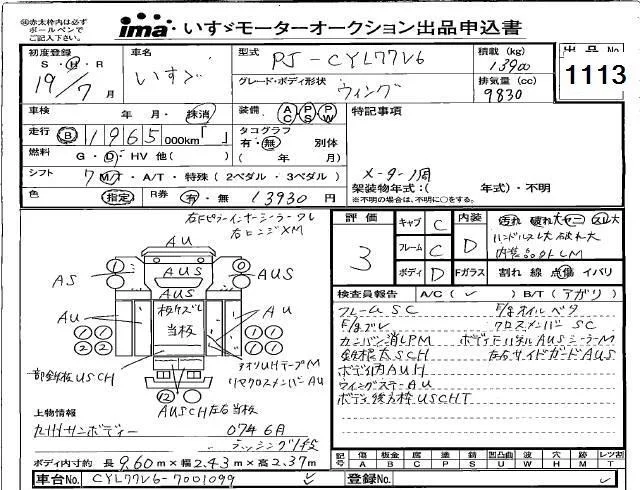 ㊟赤太枠内は必ず
ボールペンで
ご記入下さい。
ima いすゞモーターオークション出品申込書
初度登録
S・H・R
19/7月
車名
いすゞ
型式
PJ-CYL77V6
積載(kg)
13900
出品No.
1113
グレード・ボディ形状
ウィング
排気量(cc)
9830
車検
年 月・抹消
装備
AC PS PW
特記事項
走行
B 1965 000km「 」
タコグラフ
有・無 別体
( 年 月)
燃料
G・D・HV 他( )
メーター1周
シフト
7 M/T・A/T・特殊(2ペダル・3ペダル)
架装物年式:( 年式)・不明
※不明の場合は、不明に○をする。
色
指定
R券
有・無 13930円
右Fピラーインナーシーラークレ
右ヒンジXM
AU
AS
AUS
AUS
AU
AU
板ケズレ
当板
1 1
2 2
1 1
2 2
12
一部鈑板USCH
タオソUHテープM
リマクロスメンバーAU
AUSCH左右当板
評価
3
キャブ C
フレーム C
ボディ D
内装 D
Fガラス
汚れ 破れ大 ヤニ スレ大
ハンドルスレ大 破れ大
内装品外しM
割れ 線 点傷 イバリ
検査員報告 A/C(✓) B/T(アガリ)
フレームSC
F/gオイルベタ
F/gブレ
クロスメンバーSC
カンバン消しPM
ボディFパネルAUSシーラーM
鈑根太SCH
左右サイドガードAUS
ボディ内AUH
ウイングステーAU
ボディ後方枠USCHT
上物情報
九州サンボディー 07年6月
ラッシング1段
ボディ内寸約 長9.60m×幅2.43m×高2.37m
記号 傷A 板金B 腐C 塗P 錆S 凹凸曲U 波W 穴H 跡M レツ割T
車台No. CYL77V6-7001099 ✓
登録No. ✓